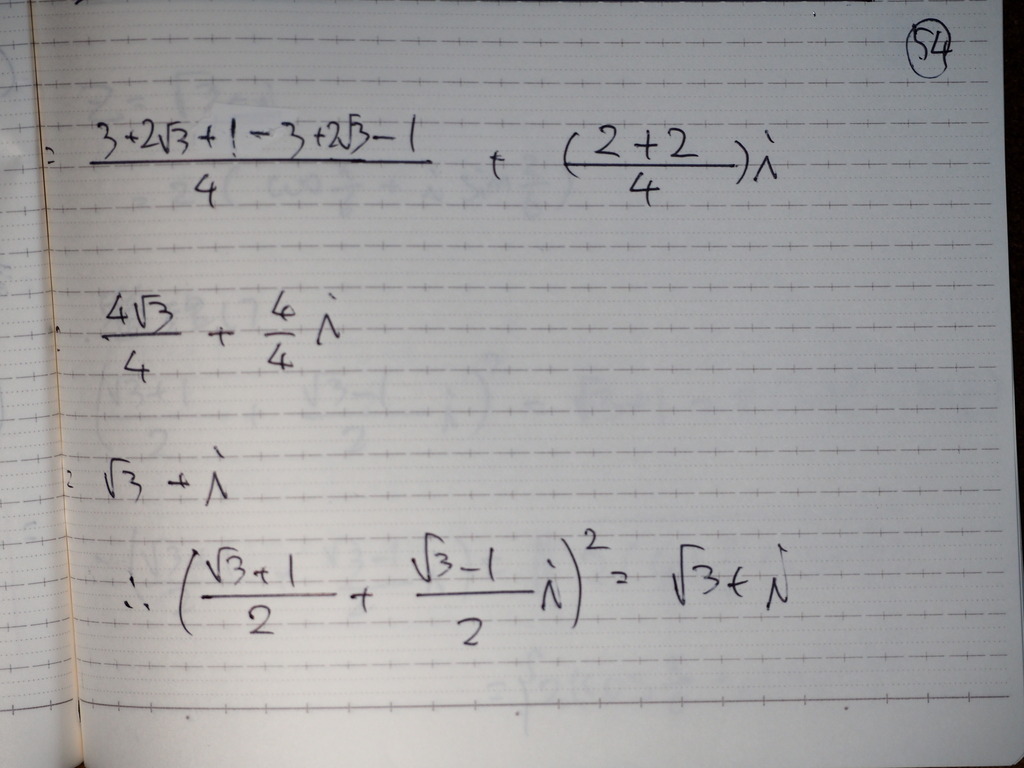 54
= (3+2√3+1-3+2√3-1)/4 + ((2+2)/4)i
= 4√3/4 + 4/4 i
= √3 + i
∴ ((√3+1)/2 + (√3-1)/2 i)² = √3 + i